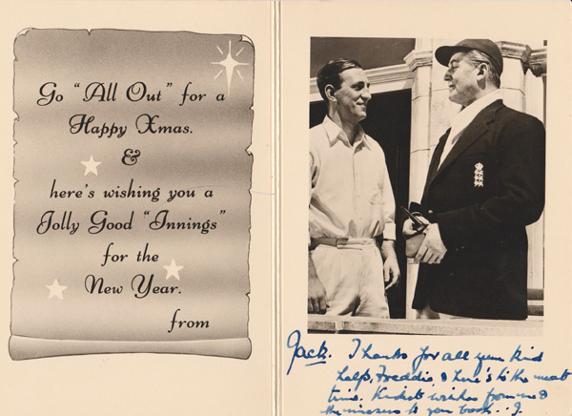 Go "All Out" for a
Happy Xmas.
&
here's wishing you a
Jolly Good "Innings"
for the
New Year.
from
Jack. Thanks for all your kind
help, Freddie, & here's to the next
time. Kindest wishes from me &
the missus to you both.. J.